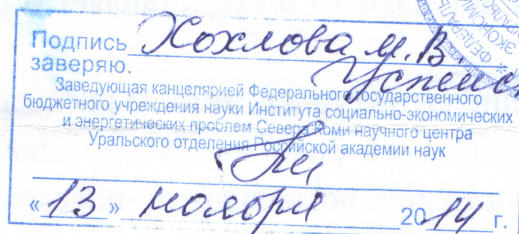 Подпись Хохлова М.В.
заверяю.
Заведующая канцелярией Федерального государственного
бюджетного учреждения науки Института социально-экономических
и энергетических проблем Севера Коми научного центра
Уральского отделения Российской академии наук
«13» ноября 2014 г.